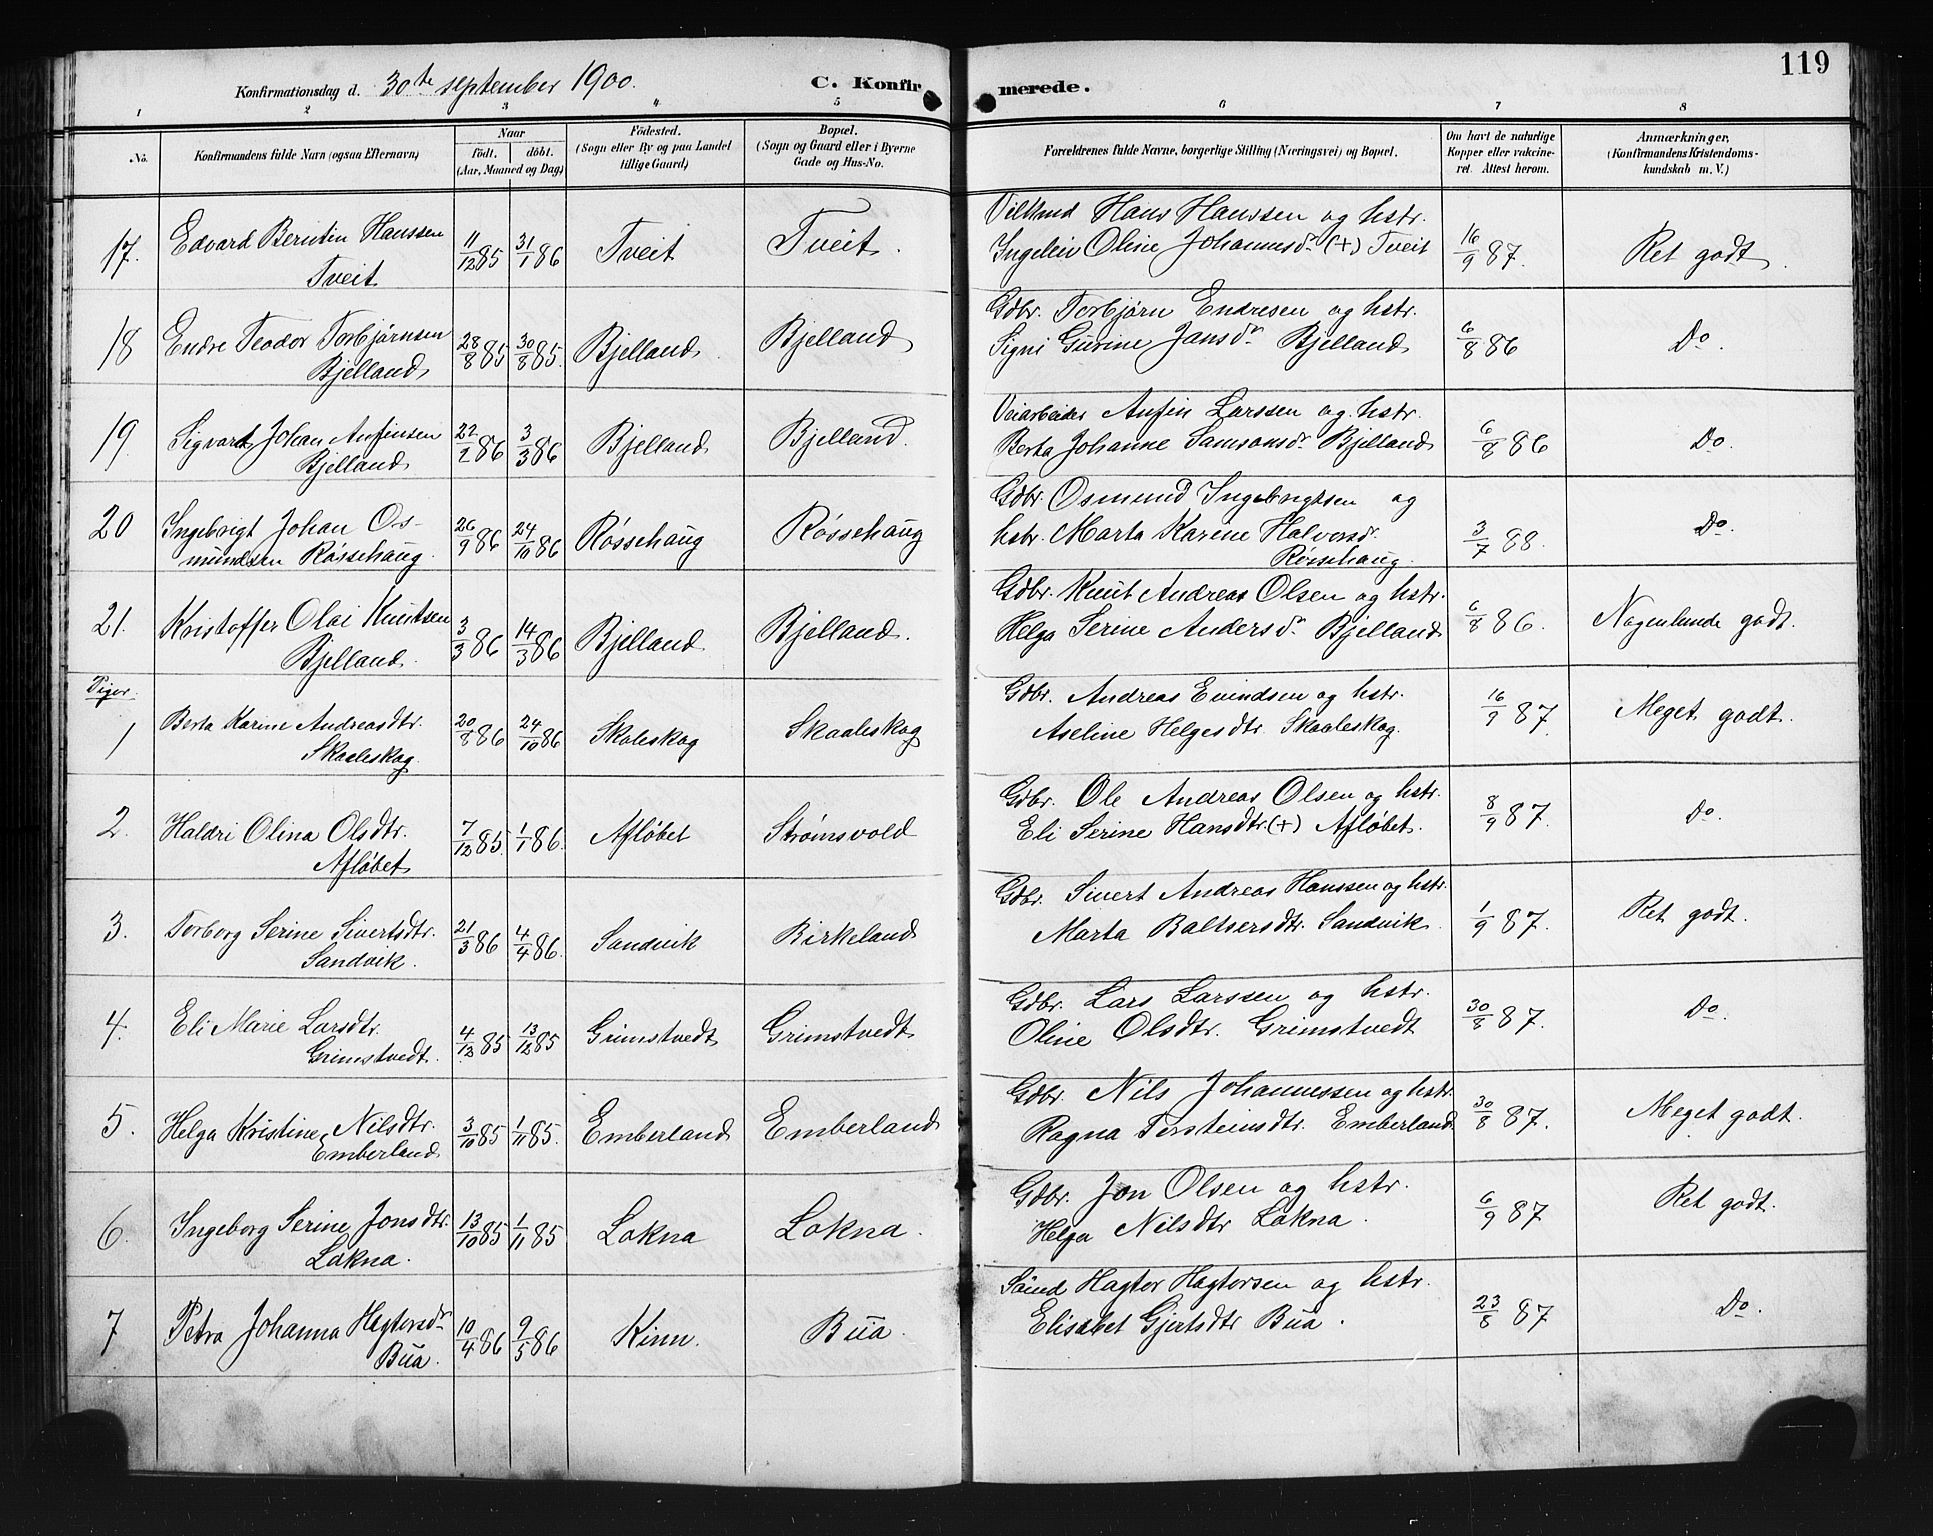 119
Konfirmationsdag d. 30te september 1900. C. Konfirmerede.
1 2 3 4 5 6 7 8
No. Konfirmandens fulde Navn (ogsaa Efternavn) Naar født. døbt. (Aar, Maaned og Dag) Fødested. (Sogn eller By og paa Landet tillige Gaard) Bopæl. (Sogn og Gaard eller i Byerne Gade og Hus-No. Forældrenes fulde Navne, borgerlige Stilling (Næringsvei) og Bopæl. Om havt de naturlige Kopper eller vakcineret. Attest herom. Anmærkninger, (Konfirmandens Kristendomskundskab m. V.)
17. Edvard Berntin Hanssen 11/12 85 31/1 86 Tveit Tveit. Hans Hanssen og hstr.
Tveit Ingelein Oline Johannesdr. (+) Tveit 16/9 87. Ret godt.
18 Endre Teodor Torbjørnsen 28/8 85 30/8 85. Bjelland. Bjelland Gdbr. Torbjørn Endresen og hstr.
Bjelland Signi Gurine Jansdr. Bjelland 6/8 86 Do.
19. Sigvart Johan Anfinsen 22/2 86 3/3 86 Bjelland Bjelland. Veiarbeider Anfin Larssen og hstr.
Bjelland Berta Johanne Samsonsdr. Bjelland 6/8 86 Do.
20 Ingebrigt Johan Os- 26/9 86 24/10 86 Røssehaug Røssehaug Gdbr. Osmund Ingebrigtsen og
mundsen Røssehaug. hstr. Marta Karine Halvorsdr. 3/7 88. Do.
Røssehaug.
21. Kristoffer Olai Knutsen 3/3 86 14/3 86 Bjelland Bjelland. Gdbr. Knut Andreas Olsen og hstr.
Bjelland. Helga Serine Andersdr. Bjelland 6/8 86. Nogenlunde godt.
Piger.
1 Berta Karine Andreasdtr. 20/8 86 24/10 86 Skaleskog Skaaleskog Gdbr. Andreas Eivindsen og hstr.
Skaaleskog. Aseline Helgesdtr. Skaaleskog. 16/9 87. Meget godt.
2. Haldri Olina Olsdtr. 7/12 85. 1/1 86. Afløbet Strømsvold Gdbr. Ole Andreas Olsen og hstr.
Afløbet Eli Serine Hansdtr. (+) Afløbet. 8/9 87. Do.
3. Torborg Serine Sivertsdtr. 21/3 86 4/4 86. Sandvik Birkeland Gdbr. Sivert Andreas Hanssen og hstr.
Sandvik. Marta Baltsersdtr. Sandvik. 1/9 87. Ret godt.
4. Eli Marie Larsdtr. 4/12 85 13/12 85 Grimstvedt Grimstvedt Gdbr. Lars Larssen og hstr.
Grimstvedt. Oline Olsdtr. Grimstvedt 30/8 87. Do.
5. Helga Kristine Nilsdtr. 3/10 85 1/11 85. Emberland Emberland Gdbr. Nils Johannessen og hstr.
Emberland Ragna Torsteinsdtr. Emberland 30/8 87. Meget godt.
6. Ingeborg Serine Jonsdtr. 13/10 85 1/11 85 Lokna Lokna. Gdbr. Jon Olsen og hstr.
Løkna. Helga Nilsdtr Lokna. 6/9 87 Ret godt.
7 Petra Johanna Hagtorsdr. 10/4 86 9/5 86 Kinn. Bua. Hagtor Hagtorsen og hstr.
Bua. Elisabet Gjertsdtr Bua. 23/8 87 Do.